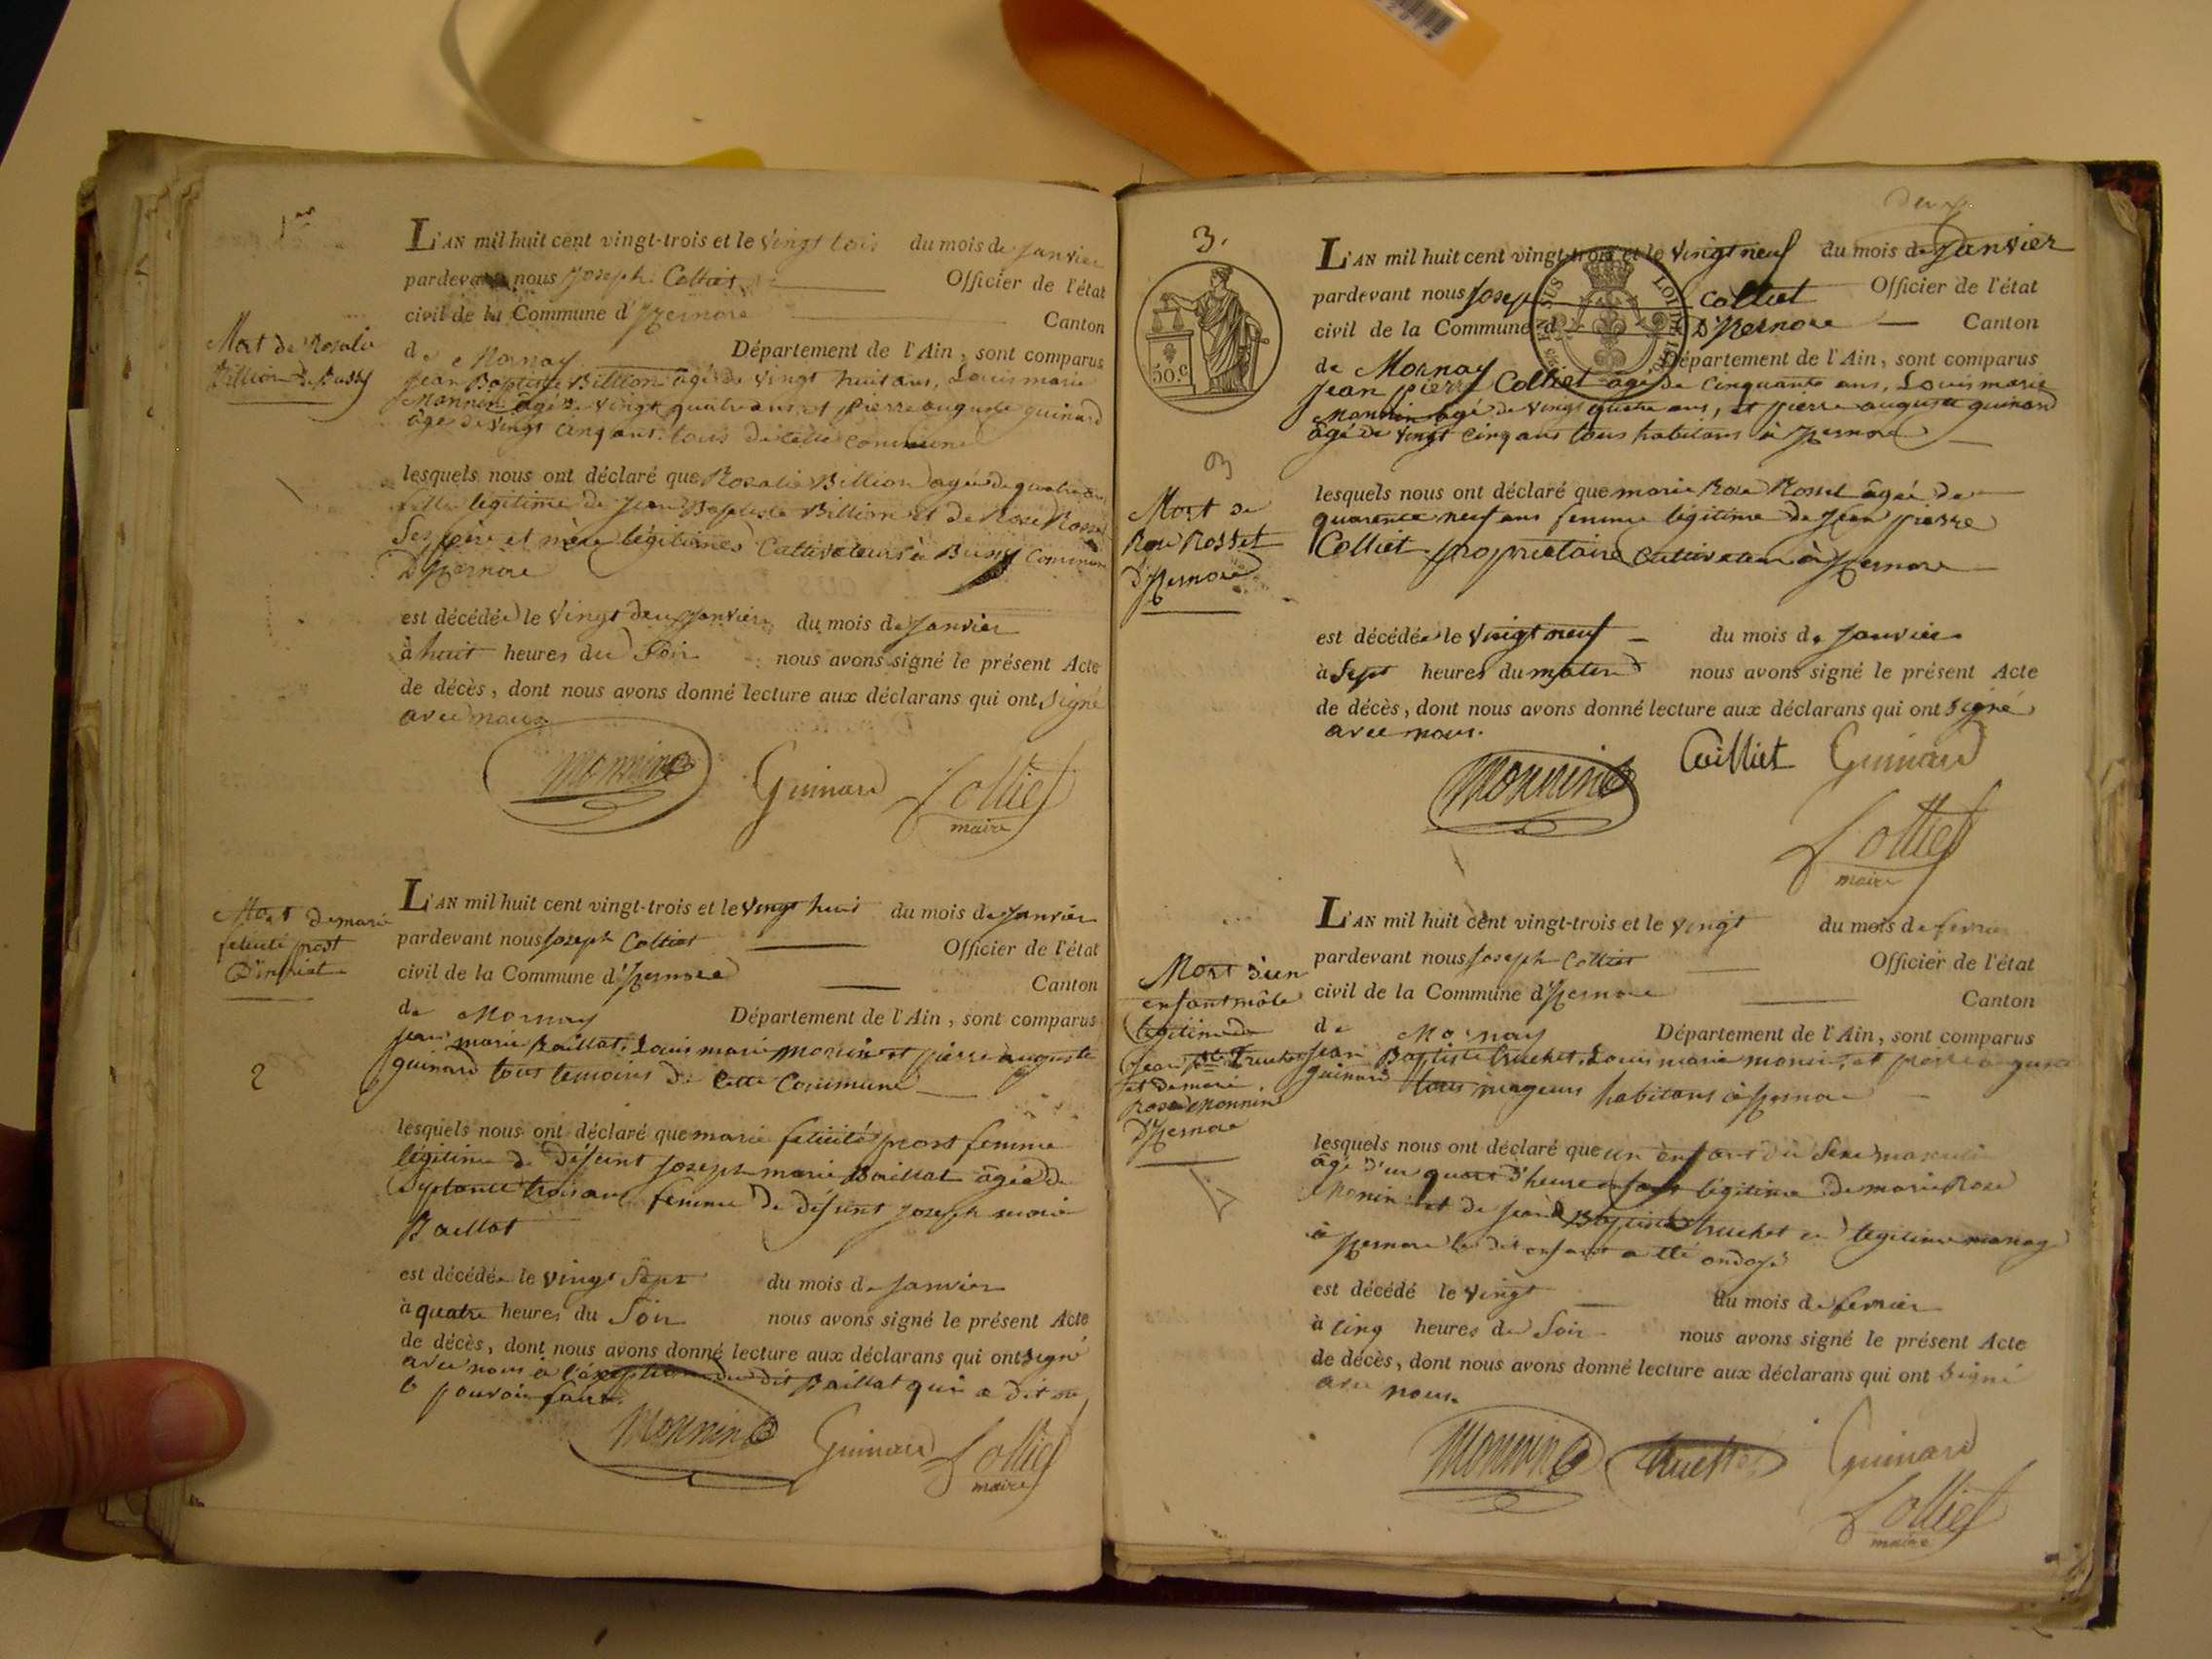 1er
L'AN mil huit cent vingt-trois et le vingt trois du mois de Janvier
pardevant nous Joseph Colliet Officier de l'état
civil de la Commune d'Izernore Canton
de Mornay Département de l'Ain, sont comparus
Mort de Rosalie
Billion de Bussy
jean Baptiste Billion âgé de vingt huit ans, Louis marie
Monnin âgé de vingt quatre ans et pierre auguste guinard
âgé de vingt cinq ans tous de cette commune
lesquels nous ont déclaré que Rosalie Billion agée de quatre ans
fille légitime de jean Baptiste Billion et de Rose Rosset
Ses père et mère légitimes Cultivateurs à Bussy Commune
D'Izernore
est décédée le Vingt deux janvier du mois de janvier
à huit heures du Soir nous avons signé le présent Acte
de décès, dont nous avons donné lecture aux déclarans qui ont signé
avec nous
Monnin Guinard Colliet
maire
Mort de marie
felicité prost
L'AN mil huit cent vingt-trois et le vingt huit du mois de janvier
pardevant nous Joseph Colliet Officier de l'état
civil de la Commune d'Izernore Canton
de Mornay Département de l'Ain, sont comparus
jean marie Baillat, Louis marie monnin et pierre auguste
guinard tous temoins de cette Commune
2
lesquels nous ont déclaré que marie felicité prost femme
légitime de défunt joseph marie Baillat âgée de
Septante trois ans femme de défunt joseph marie
Baillat
est décédée le vingt Sept du mois de janvier
à quatre heures du Soir nous avons signé le présent Acte
de décès, dont nous avons donné lecture aux déclarans qui ont signé
avec nous à l'exception du dit Baillat qui a dit ne
le pouvoir faire.
Monnin Guinard Colliet
maire
deux
3.
50.c
L'AN mil huit cent vingt-trois et le vingt neuf du mois de Janvier
pardevant nous Joseph Colliet Officier de l'état
civil de la Commune d'Izernore Canton
de Mornay Département de l'Ain, sont comparus
jean pierre Colliet âgé de Cinquante ans, Louis marie
Monnin âgé de vingt quatre ans, et pierre auguste guinard
âgé de vingt Cinq ans tous habitans à Izernore
3
Mort de
Rose Rosset
d'Izernore
lesquels nous ont déclaré que marie Rose Rosset âgée de
quarante neuf ans femme légitime de jean pierre
Colliet propriétaire Cultivateur à Izernore
est décédée le vingt neuf du mois de janvier
à Sept heures du matin nous avons signé le présent Acte
de décès, dont nous avons donné lecture aux déclarans qui ont signé
avec nous.
Monnin Colliet Guinard
Colliet
maire
L'AN mil huit cent vingt-trois et le vingt du mois de fevrier
pardevant nous Joseph Colliet Officier de l'état
civil de la Commune d'Izernore Canton
de Mornay Département de l'Ain, sont comparus
Mort d'un
enfant mâle
légitime de
jean Bte Truchet
et de marie
Rose Monnin
D'Izernore
jean Baptiste truchet, Louis marie monin, et pierre auguste
guinard tous majeurs habitans à Izernore
4
lesquels nous ont déclaré que un enfant du Sexe masculin
âgé d'un quart d'heure enfant légitime de marie Rose
Monin et de jean Baptiste truchet en légitime mariage
à Izernore le dit enfant a été ondoyé
est décédé le vingt du mois de fevrier
à Cinq heures du Soir nous avons signé le présent Acte
de décès, dont nous avons donné lecture aux déclarans qui ont signé
avec nous.
Monnin truchet Guinard
Colliet
maire